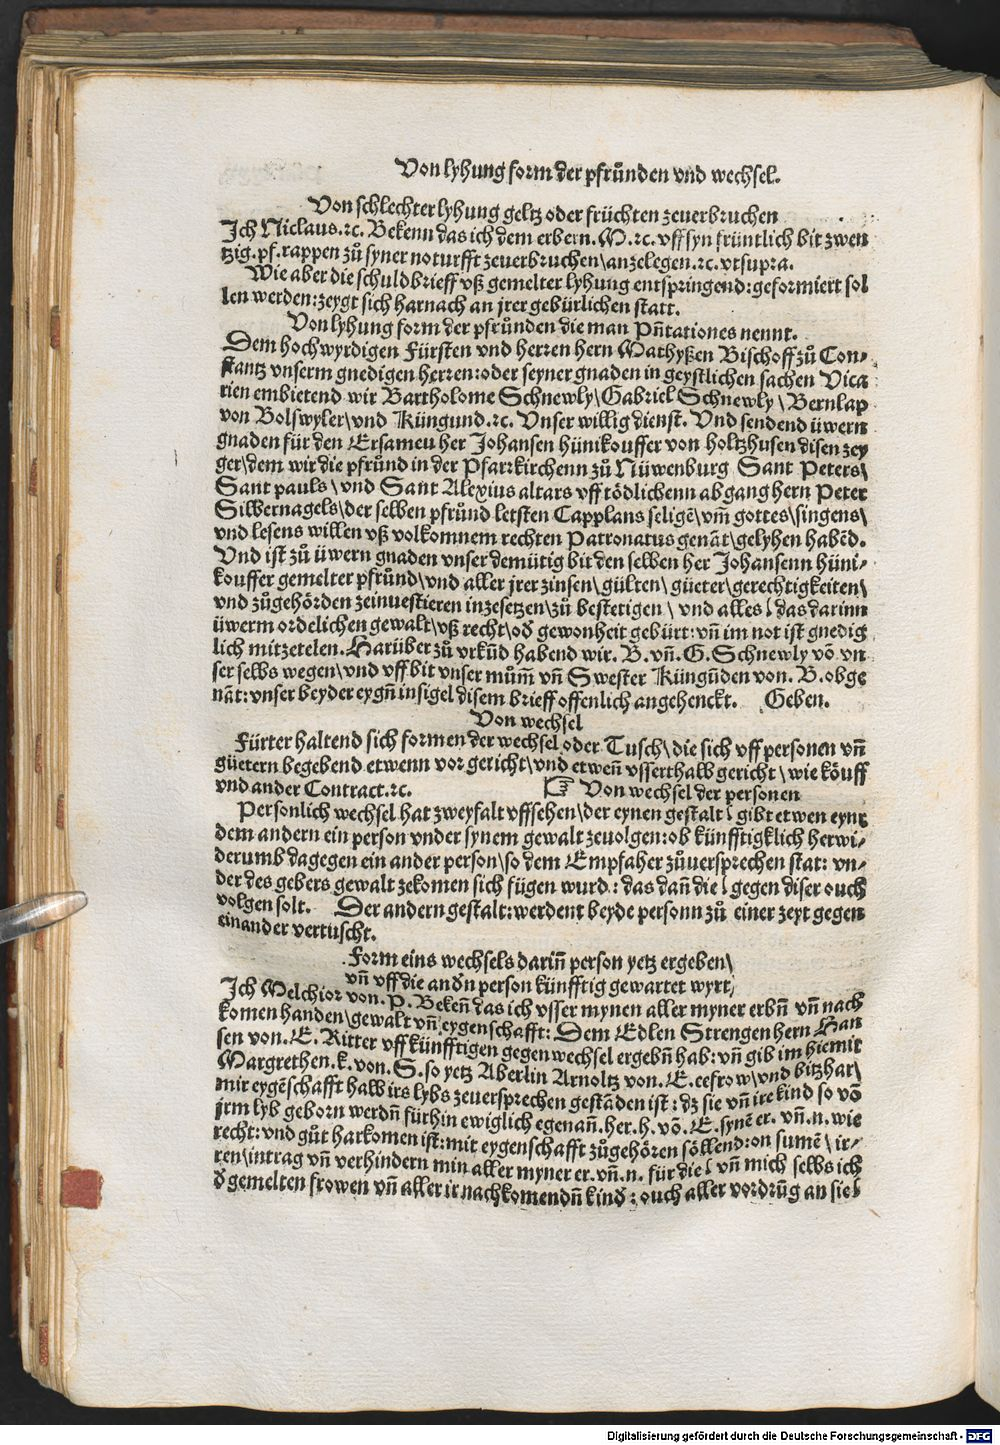 Von lyhung form der pfrůnden vnd wechsel.
Von schlechter lyhung geltz oder früchten zeuerbruchen
Ich Niclaus.ꝛc. Bekenn das ich dem erbern. M.ꝛc. vff syn früntlich bit zwen
tzig.pf.rappen zů syner noturfft zeuerbruchen\anzelegen.ꝛc. vtsupra.
Wie aber die schuldbrieff vß gemelter lyhung entspringend:geformiert sol
len werden:zeygt sich harnach an jrer gebürlichen statt.
Von lyhung form der pfrůnden die man Pñtationes nennt.
Dem hochwyrdigen Fürsten vnd herren hern Mathyßen Bischoff zů Con⸗
stantz vnserm gnedigen herren:oder seyner gnaden in geystlichen sachen Vica
rien embietend wir Bartholome Schnewly\Gabriel Schnewly\Bernlap
von Bolswyler\vnd Küngund.ꝛc. Vnser willig dienst. Vnd sendend üwern
gnaden für den Ersameu her Johansen hünikouffer von holtzhusen disen zey
ger\dem wir die pfrůnd in der Pfarrkirchenn zů Nüwenburg Sant Peters\
Sant pauls\vnd Sant Alexius altars vff tödlichenn abgang hern Peter
Silbernagels\der selben pfrůnd letsten Capplans seligē\vm̄ gottes\singens\
vnd lesens willen vß volkomnem rechten Patronatus genāt\gelyhen habēd.
Vnd ist zů üwern gnaden vnser demütig bit den selben her Johansenn hüni⸗
kouffer gemelter pfrůnd\vnd aller jrer zinsen\gülten\güeter\gerechtigkeiten\
vnd zůgehörden zeinuestieren inzesetzen\zů bestetigen\vnd alles\das darinn
üwerm ordelichen gewalt\vß recht\oď gewonheit gebürt:vn̄ im not ist gnedig
lich mitzetelen. Harüber zů vrkūd habend wir. B. vn̄. G. Schnewly vō vn
ser selbs wegen\vnd vff bit vnser mům̄ vn̄ Swester Küngūden von. B. obge
nāt:vnser beyder eygn̄ insigel disem brieff offenlich angehenckt. Geben.
Von wechsel
Fürter haltend sich formen der wechsel oder Tusch\die sich vff personen vn̄
güetern begebend etwenn vor gericht\vnd etwen̄ vsserthalb gericht\wie köuff
vnd ander Contract.ꝛc. ☞ Von wechsel der personen
Personlich wechsel hat zweyfalt vffsehen\der eynen gestalt\gibt etwen eynr
dem andern ein person vnder synem gewalt zeuolgen:ob künfftigklich herwi⸗
derumb dagegen ein ander person\so dem Empfaher zůuersprechen stat: vn⸗
der des gebers gewalt zekomen sich fügen wurd: das dan̄ die\gegen diser ouch
volgen solt. Der andern gestalt:werdent beyde personn zů einer zeyt gegen
einander vertuscht.
Form eins wechsels darin̄ person yetz ergeben\
vn̄ vff die anďn person künfftig gewartet wyrt\
Ich Melchior von. P. Beken̄ das ich vsser mynen aller myner erbn̄ vn̄ nach
komen handen\gewalt vn̄ eygenschafft: Dem Edlen Strengen hern Han
sen von. E. Ritter vff künfftigen gegenwechsel ergebn̄ hab:vn̄ gib im hiemit
Margrethen.k. von. S. so yetz Aberlin Arnoltz von. E. eefrow\vnd bitzhar\
mir eygēschafft halb irs lybs zeuersprechen gestāden ist: dz sie vn̄ ire kind so vō
jrm lyb geborn werdn̄ fürhin ewiglich egenan̄.her.h. vō. E. synē er. vn̄.n. wie
recht:vnd gůt harkomen ist:mit eygenschafft zůgehören söllend:on sumē\ir⸗
ren\intrag vn̄ verhindern min aller myner er. vn̄.n. für die\vn̄ mich selbs ich
ď gemelten frowen vn̄ aller ir nachkomendn̄ kinď: ouch aller vordrūg an sie\
Digitalisierung gefördert durch die Deutsche Forschungsgemeinschaft - DFG